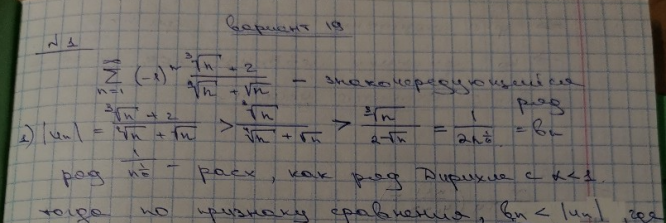 вариант 19
№1
∑_{n=1}^{∞} (-1)^n (∛n + 2)/(∛n + √n) - знакочередующийся
ряд
1) |u_n| = (∛n + 2)/(∛n + √n) > ∛n/(∛n + √n) > ∛n/(2√n) = 1/(2n^{1/6}) = b_n
ряд 1/n^{1/6} - расх, как ряд Дирихле с α<1.
тогда по признаку сравнения, b_n < |u_n|